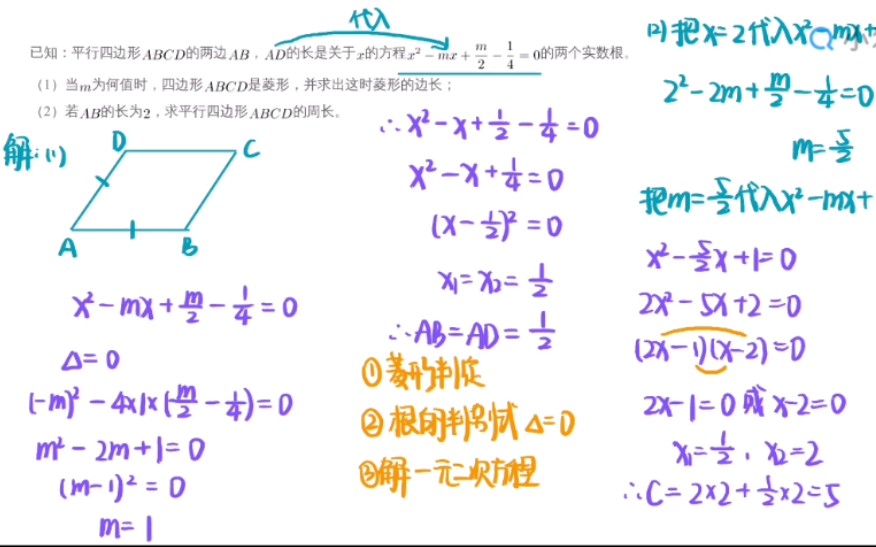 代入
已知：平行四边形ABCD的两边AB，AD的长是关于x的方程x² − mx + m/2 − 1/4 = 0的两个实数根。
（1）当m为何值时，四边形ABCD是菱形，并求出这时菱形的边长；
（2）若AB的长为2，求平行四边形ABCD的周长。
解:(1)
D C
A B
x² − mx + m/2 − 1/4 = 0
Δ = 0
(−m)² − 4×1×(m/2 − 1/4) = 0
m² − 2m + 1 = 0
(m−1)² = 0
m = 1
∴x² − x + 1/2 − 1/4 = 0
x² − x + 1/4 = 0
(x − 1/2)² = 0
x₁ = x₂ = 1/2
∴AB = AD = 1/2
①菱形判定
②根的判别式 Δ=0
③解一元二次方程
(2)把x=2代入x² − mx+
2² − 2m + m/2 − 1/4 = 0
m = 5/2
把m = 5/2代入x² − mx +
x² − 5/2x + 1 = 0
2x² − 5x + 2 = 0
(2x−1)(x−2) = 0
2x−1=0 或 x−2=0
x₁ = 1/2 , x₂ = 2
∴C = 2×2 + 1/2×2 = 5